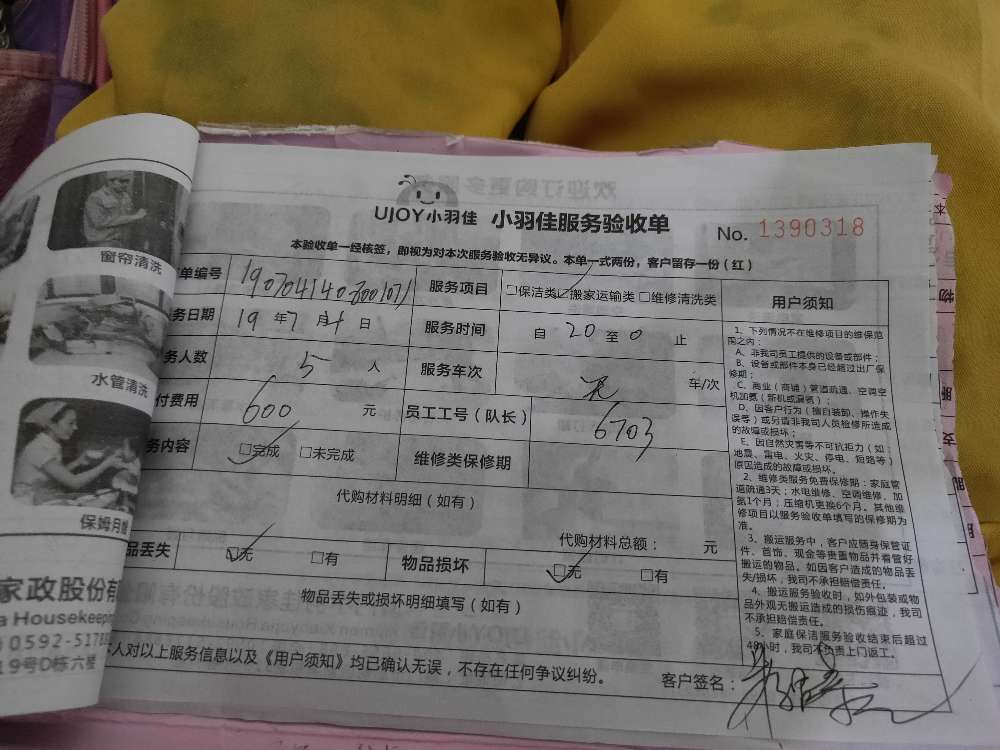 窗帘清洗
水管清洗
保姆月嫂
家政股份有
a Housekeep
0592-5178
19号D栋六层
UJOY小羽佳 小羽佳服务验收单 No. 1390318
本验收单一经核签，即视为对本次服务验收无异议。本单一式两份，客户留存一份（红）
单编号
服务项目 □保洁类 ☑搬家运输类 □维修清洗类
务日期 19 年 7 月 日
服务时间 自 20 至 0 止
务人数 5 人
服务车次 车/次
付费用 600 元
员工工号（队长） 6703
务内容 ☑完成 □未完成
维修类保修期
代购材料明细（如有）
代购材料总额： 元
品丢失 ☑无 □有
物品损坏 ☑无 □有
物品丢失或损坏明细填写（如有）
本人对以上服务信息以及《用户须知》均已确认无误，不存在任何争议纠纷。
客户签名：
用户须知
1、下列情况不在维修项目的维保范
围之内：
A、非我司员工提供的设备或部件；
B、设备或部件本身已经超过出厂保
修期；
C、商业（商铺）管道疏通、空调空
机加氨（新机或漏氨）；
D、因客户行为（擅自装卸、操作失
误等）或另请非我司人员检修所造成
的故障或损坏；
E、因自然灾害等不可抗拒力（如：
地震、雷电、火灾、停电、短路等）
原因造成的故障或损坏。
2、维修类服务免费保修期：家庭管
道疏通3天；水电维修、空调维修、加
氨1个月；压缩机更换6个月。其他维
修项目以服务验收单填写的保修期为
准。
3、搬运服务中，客户应随身保管证
件、首饰、现金等贵重物品并看管好
搬运的物品。如因客户造成的物品丢
失/损坏，我司不承担赔偿责任。
4、搬运服务验收时，如外包装或物
品外观无搬运造成的损伤痕迹，我司
不承担赔偿责任。
5、家庭保洁服务验收结束后超过
48小时，我司不负责上门返工。